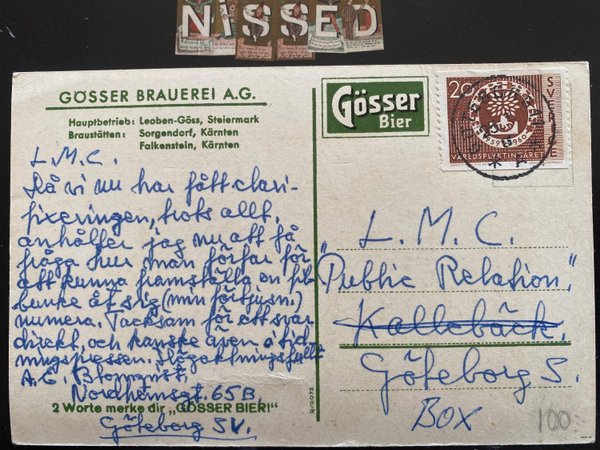 NISSED
GÖSSER BRAUEREI A.G.
Hauptbetrieb: Leoben-Göss, Steiermark
Braustätten: Sorgendorf, Kärnten
Falkenstein, Kärnten
L.M.C.
Då vi nu har fått clari-
fixeringen, trots allt,
anhåller jag nu att få
fråga hur man förfar för
att kunna framställa en fil
bunke åt sig (min förtjusn.)
numera. Tacksam för ett svar
direkt, och kanske även o tid
ningspressen. Högaktningsfullt
A.E. Blomqvist.
Nordhemsgt. 65B.
Göteborg SV.
2 Worte merke dir „GÖSSER BIER!"
Q/0075
Gösser
Bier
20
SVERIGE
1959 1960
VÄRLDSFLYKTINGÅRET
L.M.C.
"Public Relation"
Kallebäck,
Göteborg S.
BOX 100